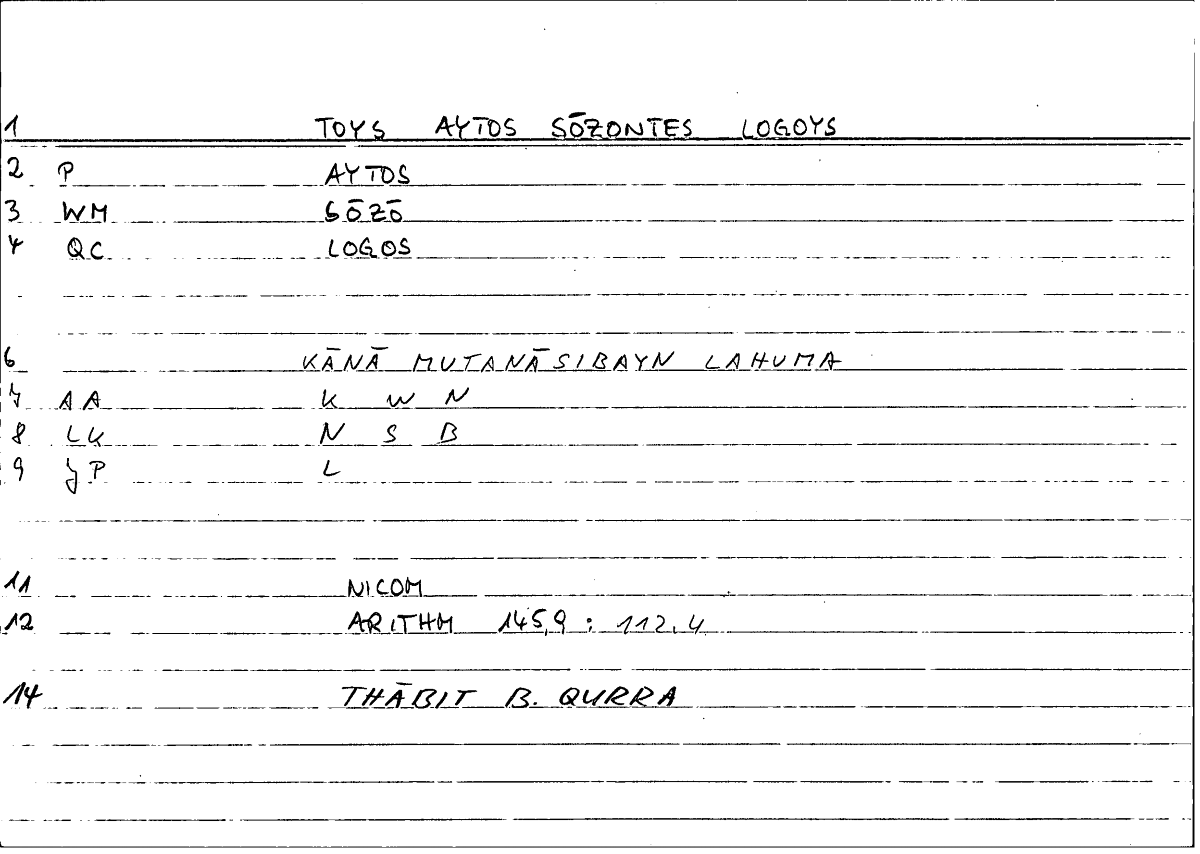 1 TOYS AYTOS SŌZONTES LOGOYS
2 P AYTOS
3 WM SŌZŌ
4 QC LOGOS
6 KĀNĀ MUTANĀSIBAYN LAHUMA
7 AA K W N
8 LK N S B
9 JP L
11 NICOM
12 ARITHM 145,9 : 112,4
14 THĀBIT B. QURRA